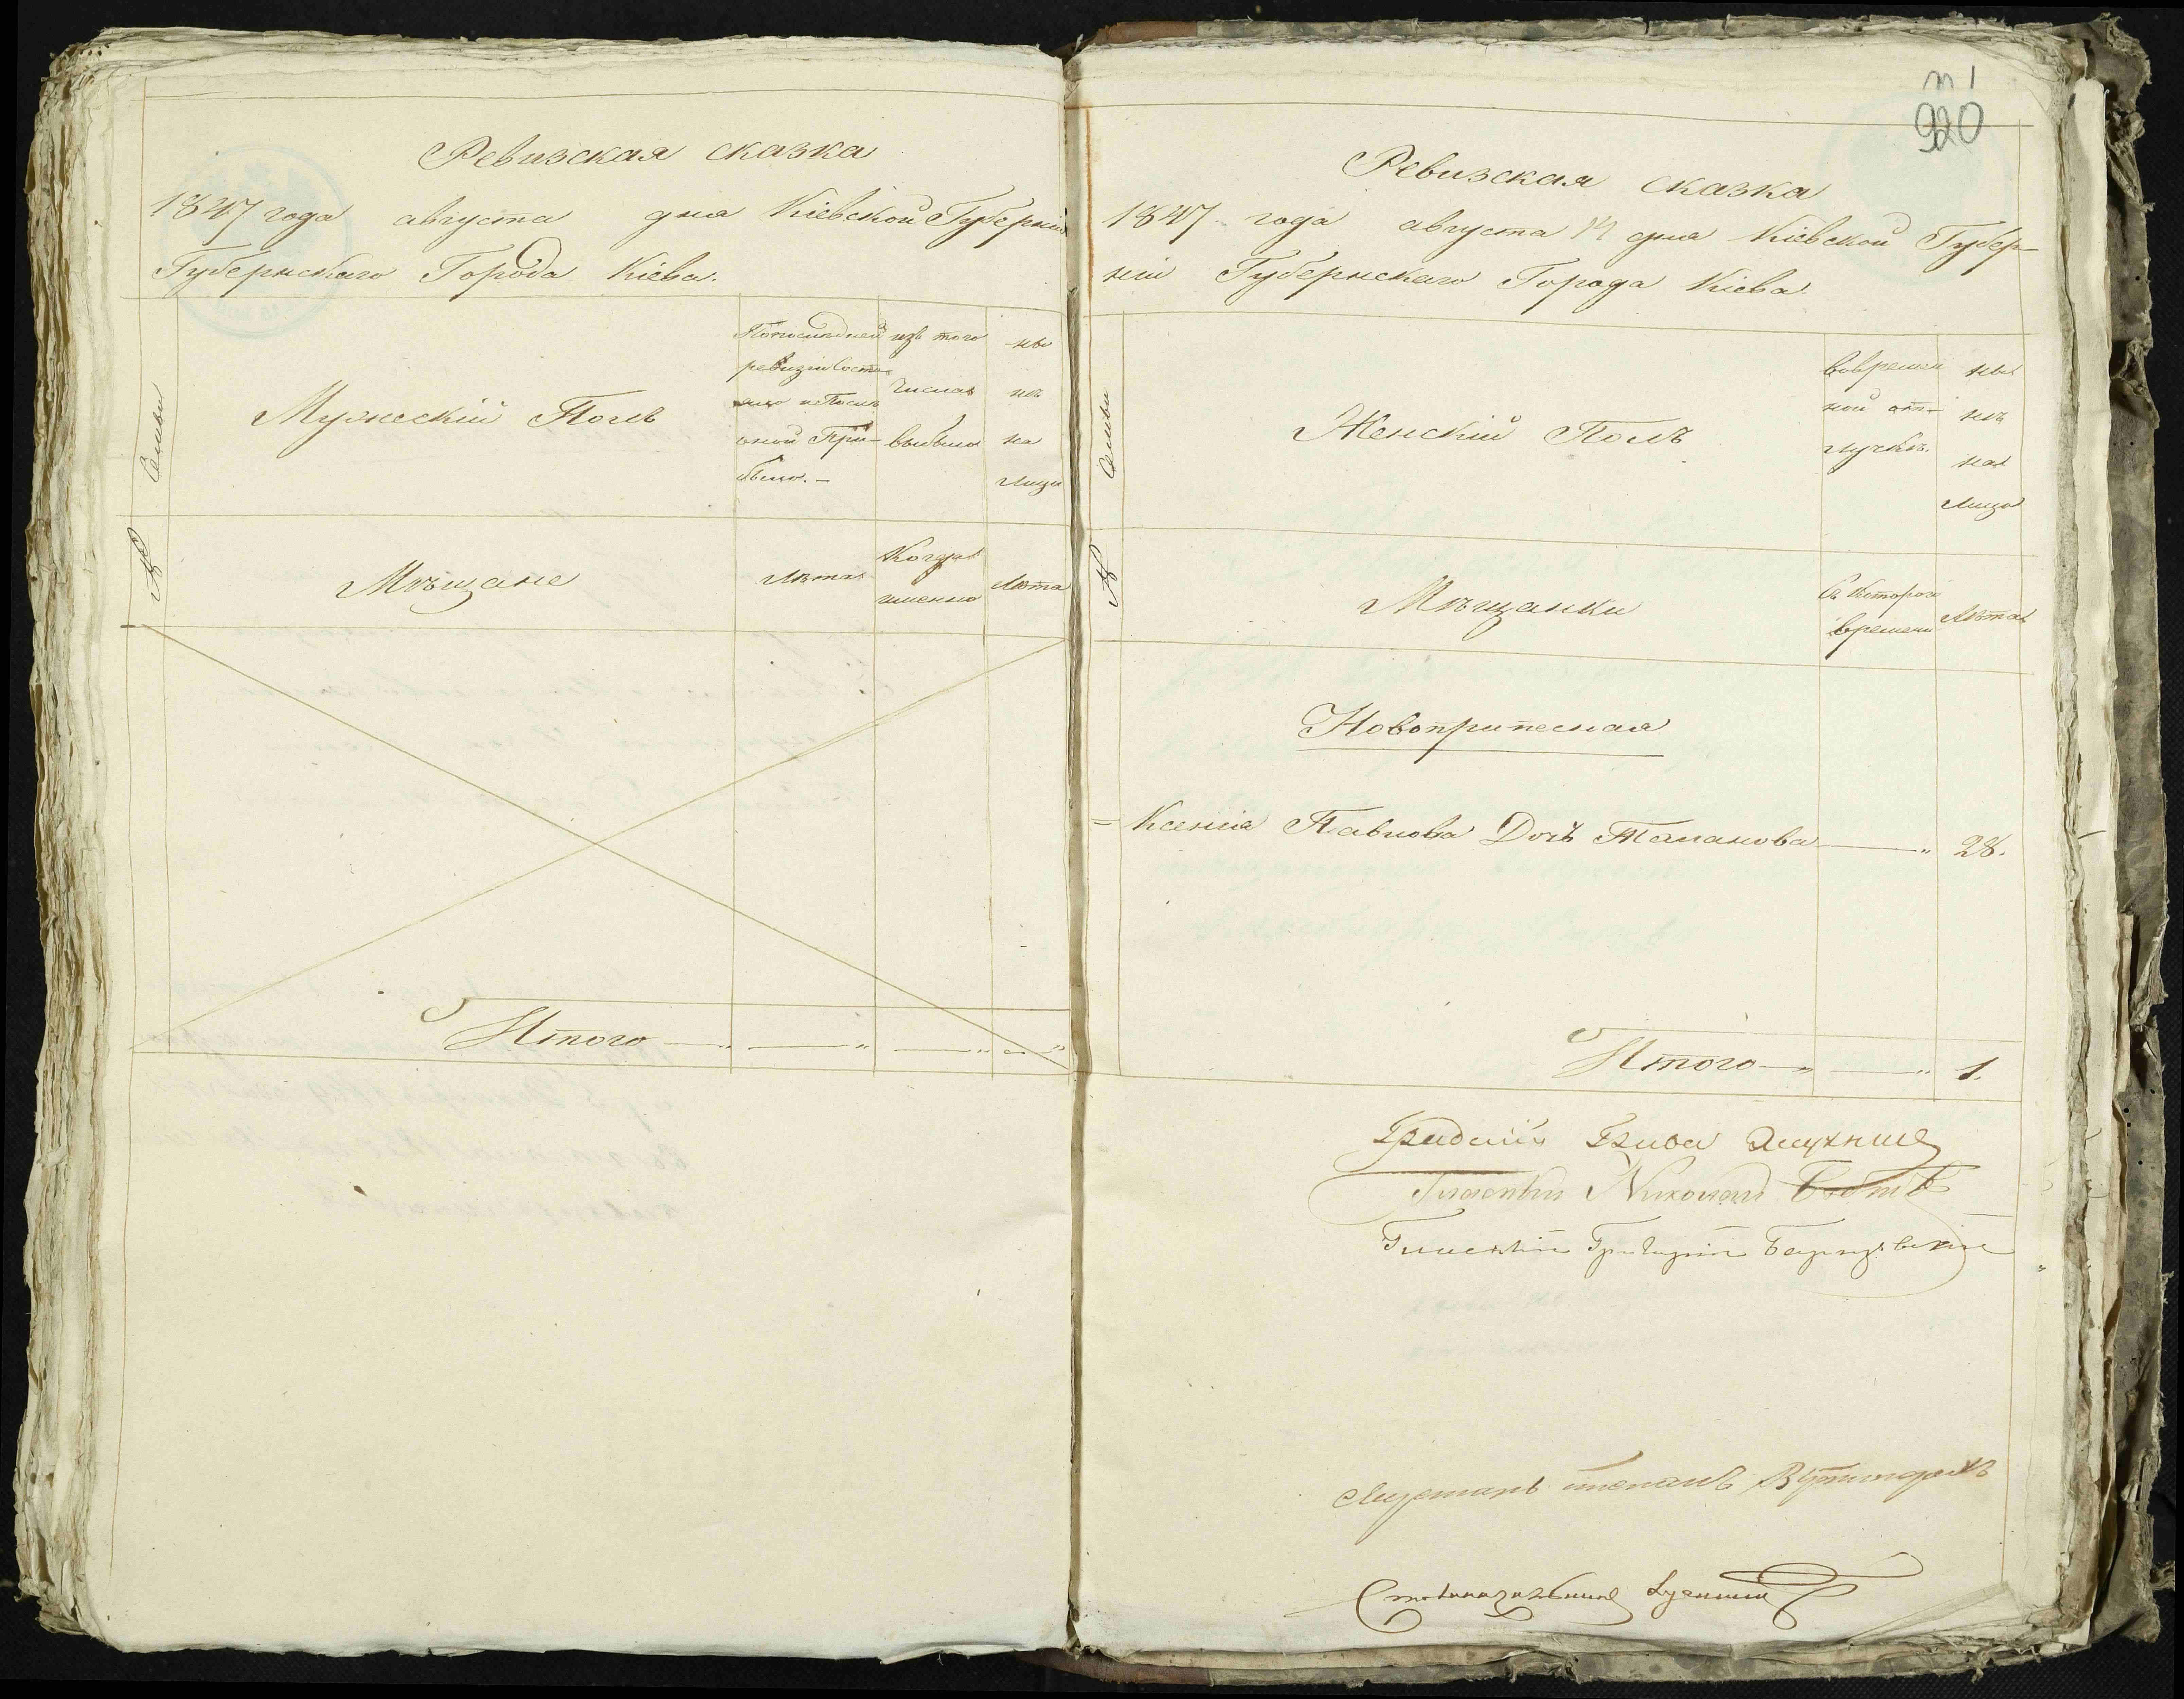 Ревизская сказка
1847 года августа дня Кіевской Губерніи
Губернскаго Города Кіева.
№ Семьи
Мужескій Полъ
По последней
ревизіи состо-
яло и после
оной При-
было.-
изъ того
числа
выбыло
ны
нѣ
на
лицо
Мѣщане
Лѣта
Когда
именно
Лѣта
Итого
920
Ревизская сказка
1847 года августа 14 дня Кіевской Губер-
ніи Губернскаго Города Кіева.
№ Семьи
Женскій Полъ
Вовремен
ной от-
лучкѣ.
ны
нѣ
на
лицо
Мѣщанки
Съ котораго
времени
Лѣта
Новоприписная
= Ксенія Павлова Дочь Таманова 28.
Итого 1.
Градскій Глава
Гласный Николай
Гласный Григорій